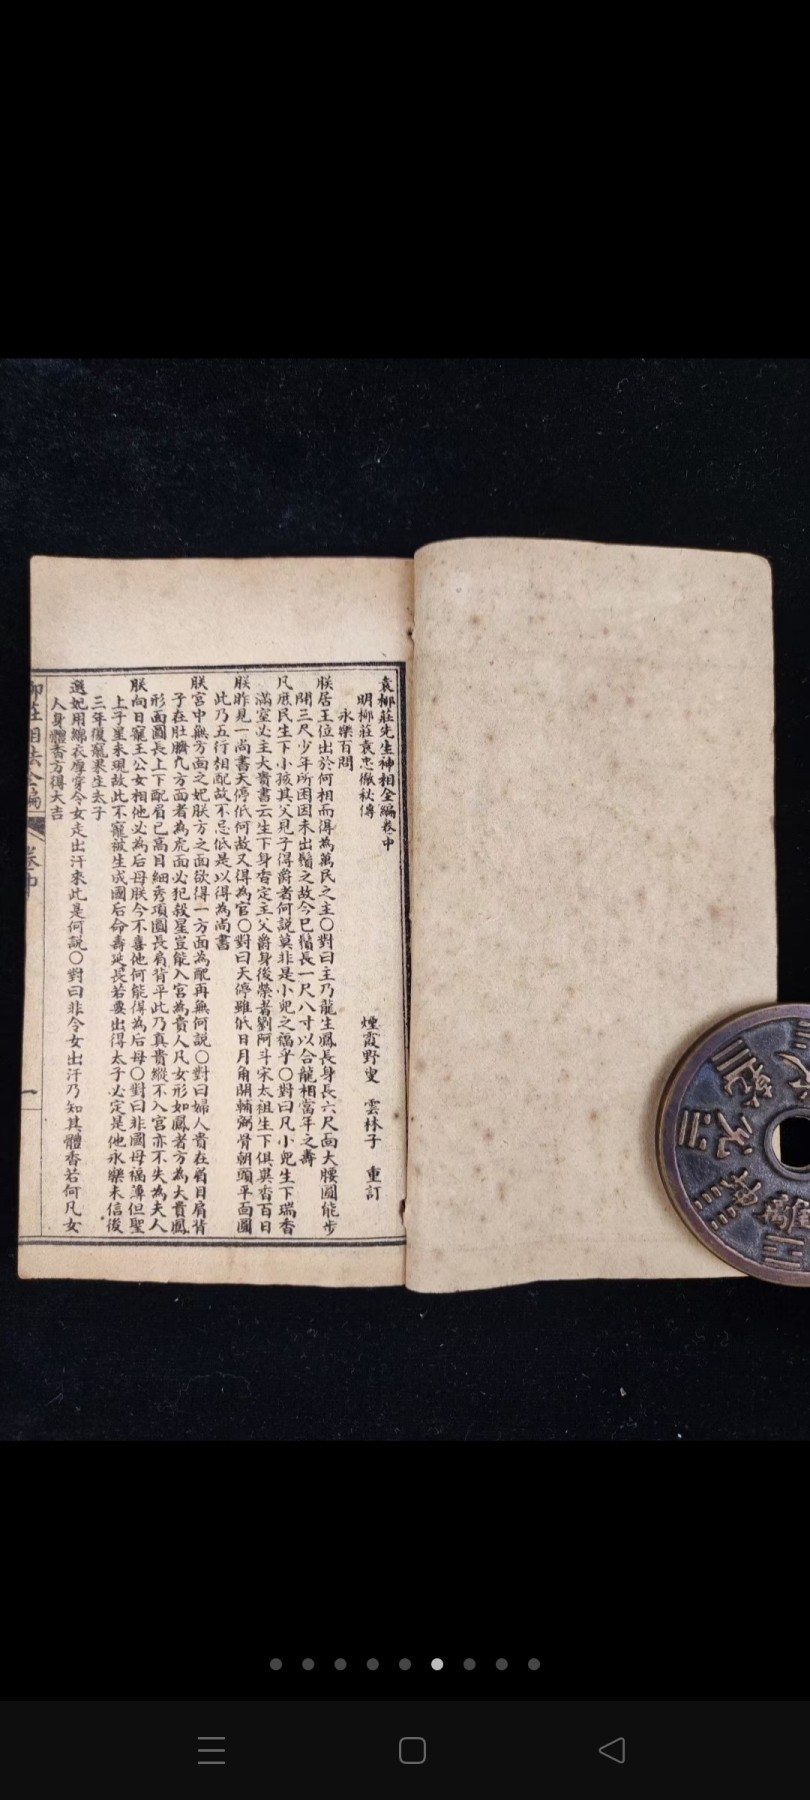 袁柳莊先生神相全編卷中
明柳莊袁忠徹秘傳
煙霞野叟　雲林子　重訂
永樂百問
朕居王位出於何相而得為萬民之主〇對曰主乃龍生鳳長身長六尺面大腰圓能步
開三尺少年所困因未出鬚之故今巳鬚長一尺八寸以合龍相當年之壽
凡庶民生下小孩其父見子得爵者何説莫非是小兒之福乎〇對曰凡小兒生下瑞香
滿室必主大貴書云生下身香定主父爵身後榮者劉阿斗宋太祖生下俱異香百日
朕昨見一尚書天停低何故又得為官〇對曰天停雖低日月角開輔弼骨朝頭平面圓
此乃五行相配故不忌低是以得為尚書
朕宮中無方面之妃朕方之面欲得一方面為配再無何説〇對曰婦人貴在眉目肩背
子在肚臍凢方面者為虎面必犯殺星豈能入宮為貴人凡女形如鳳者方為大貴鳳
形面圓長上下配眉巳高目細秀項圓長肩背平此乃真貴縱不入宮亦不失為夫人
朕向日寵王公女相他必為后母朕今不喜他何能得為后母〇對曰非國母福薄但聖
上子星未現故此不寵被生成國后命壽延長若要出得太子必定是他永樂未信後
三年復寵果生太子
選妃用綿衣厚穿令女走出汗來此是何説〇對曰非令女出汗乃知其體香若何凡女
人身體香方得大吉
柳莊相法全編
卷中
一
乾
兌
坤
離